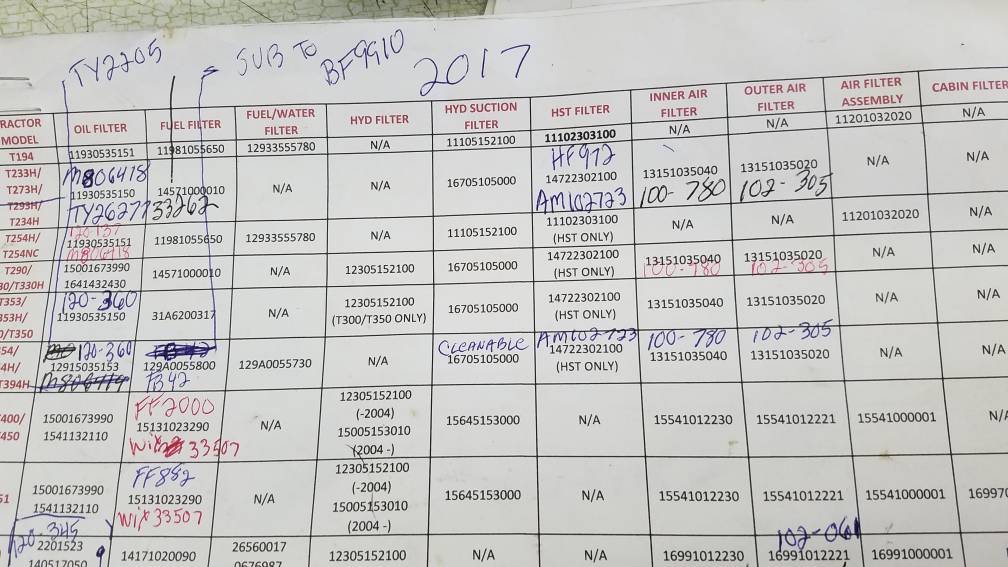 TY2205
SUB TO BF9910
2017
RACTOR MODEL OIL FILTER FUEL FILTER FUEL/WATER FILTER HYD FILTER HYD SUCTION FILTER HST FILTER INNER AIR FILTER OUTER AIR FILTER AIR FILTER ASSEMBLY CABIN FILTER
T194 11930535151 11981055650 12933555780 N/A 11105152100 11102303100 N/A N/A 11201032020 N/A
T233H/ M806418 HF972
T273H/ 11930535150 14571000010 N/A N/A 16705105000 14722302100 13151035040 13151035020 N/A N/A
T293H/ TY26277 33262 AM102723 100-780 102-305
T234H
T254H/ 120-137 11930535151 11981055650 12933555780 N/A 11105152100 11102303100 N/A N/A 11201032020 N/A
T254NC M806418 (HST ONLY)
T290/ 15001673990 14571000010 N/A 12305152100 16705105000 14722302100 13151035040 13151035020 N/A N/A
30/T330H 1641432430 (HST ONLY) 100-780 102-305
T353/ 120-360 12305152100 14722302100
353H/ 11930535150 31A6200317 N/A (T300/T350 ONLY) 16705105000 (HST ONLY) 13151035040 13151035020 N/A N/A
0/T350
54/ 120-360 CLEANABLE AM102723 100-780 102-305
4H/ 12915035153 129A0055800 129A0055730 N/A 16705105000 14722302100 13151035040 13151035020 N/A N/A
T394H FB42 (HST ONLY)
400/ FF2000 12305152100
450 15001673990 15131023290 N/A (-2004) 15645153000 N/A 15541012230 15541012221 15541000001 N/A
1541132110 Wix 33507 15005153010
(2004 -)
FF882 12305152100
51 15001673990 15131023290 N/A (-2004) 15645153000 N/A 15541012230 15541012221 15541000001 16997
1541132110 Wix 33507 15005153010
(2004 -)
120-345 102-061
2201523 14171020090 26560017 12305152100 N/A N/A 16991012230 16991012221 16991000001
140517050 0676987